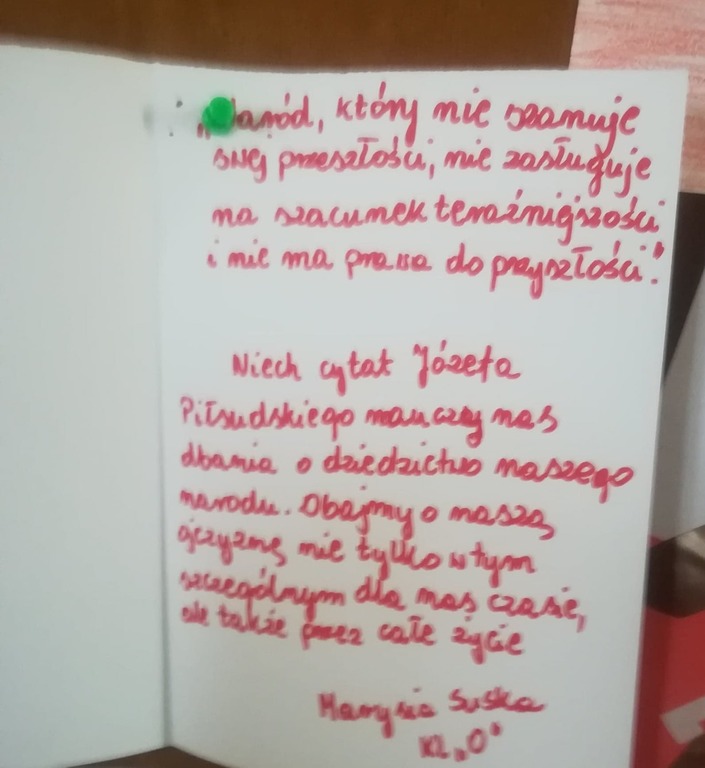 „Naród, który nie szanuje
swej przeszłości, nie zasługuje
na szacunek teraźniejszości
i nie ma prawa do przyszłości."
Niech cytat Józefa
Piłsudskiego nauczy nas
dbania o dziedzictwo naszego
narodu. Dbajmy o naszą
ojczyznę nie tylko w tym
szczególnym dla nas czasie,
ale także przez całe życie
Marysia Suska
kl. „0"